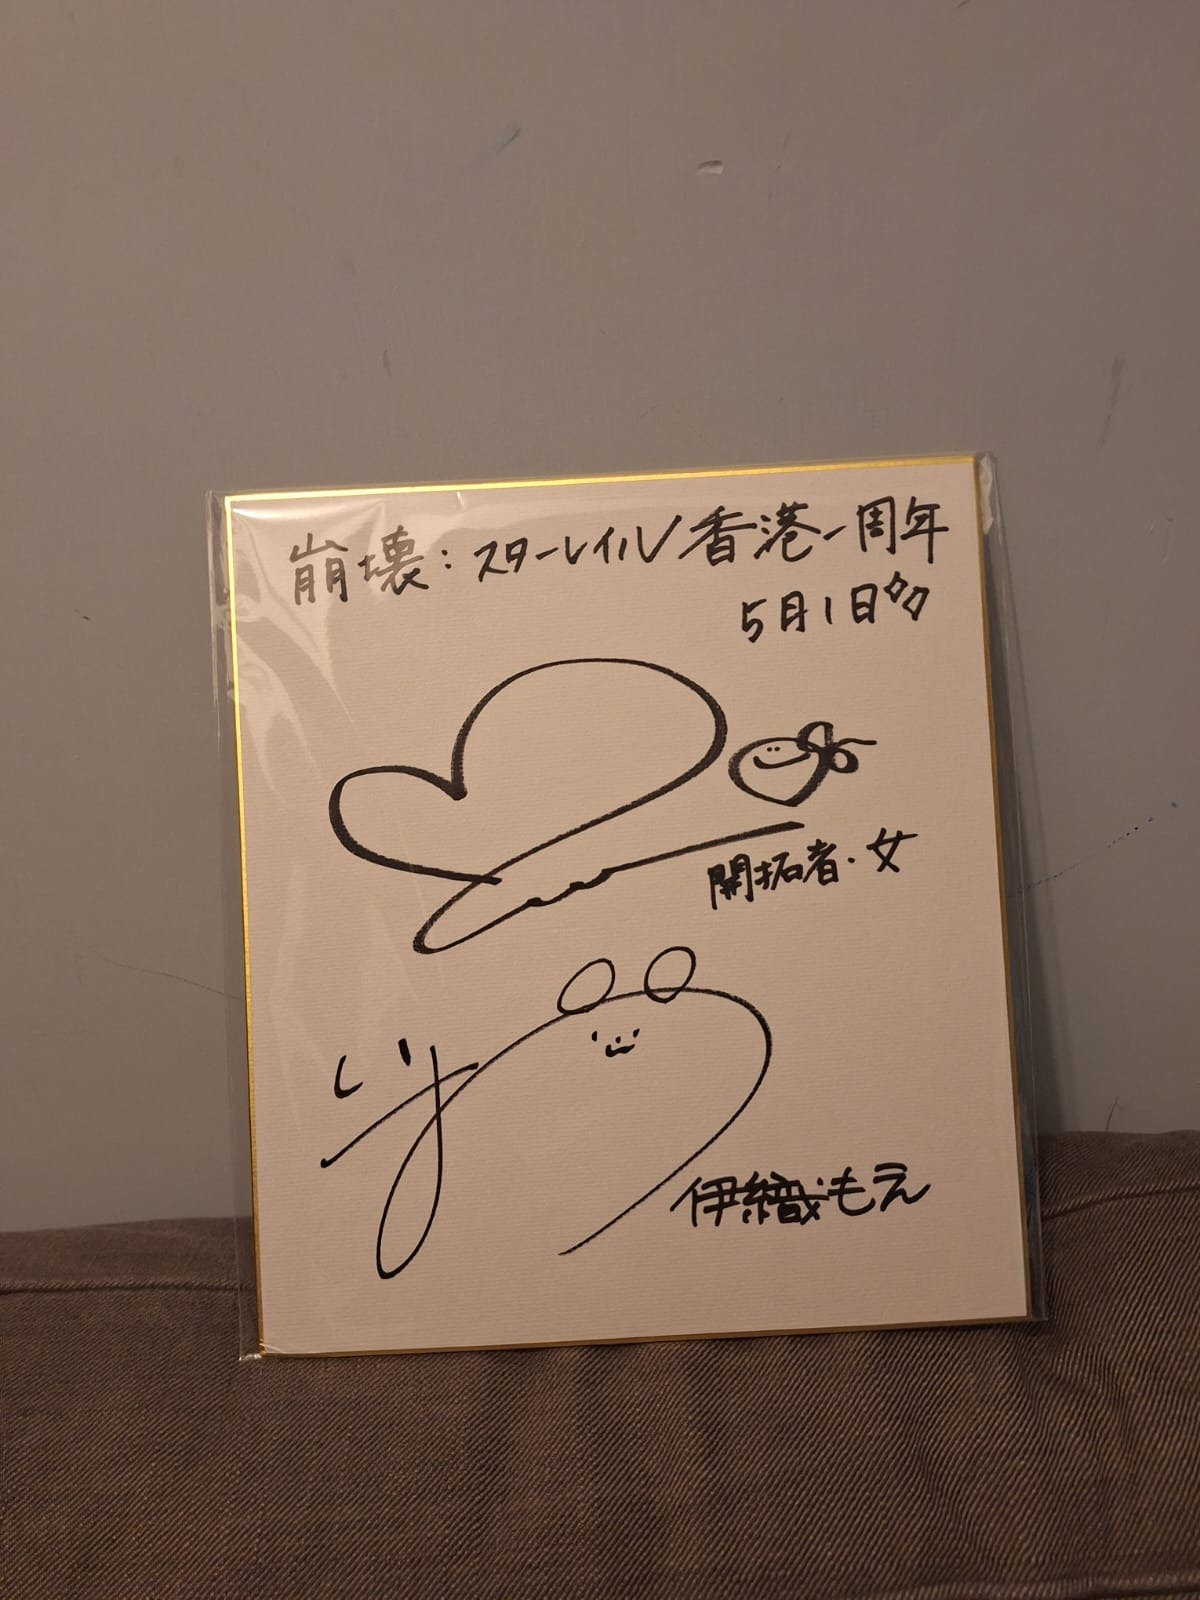 崩壊:スターレイル香港一周年
5月1日
開拓者・女
伊織もえ